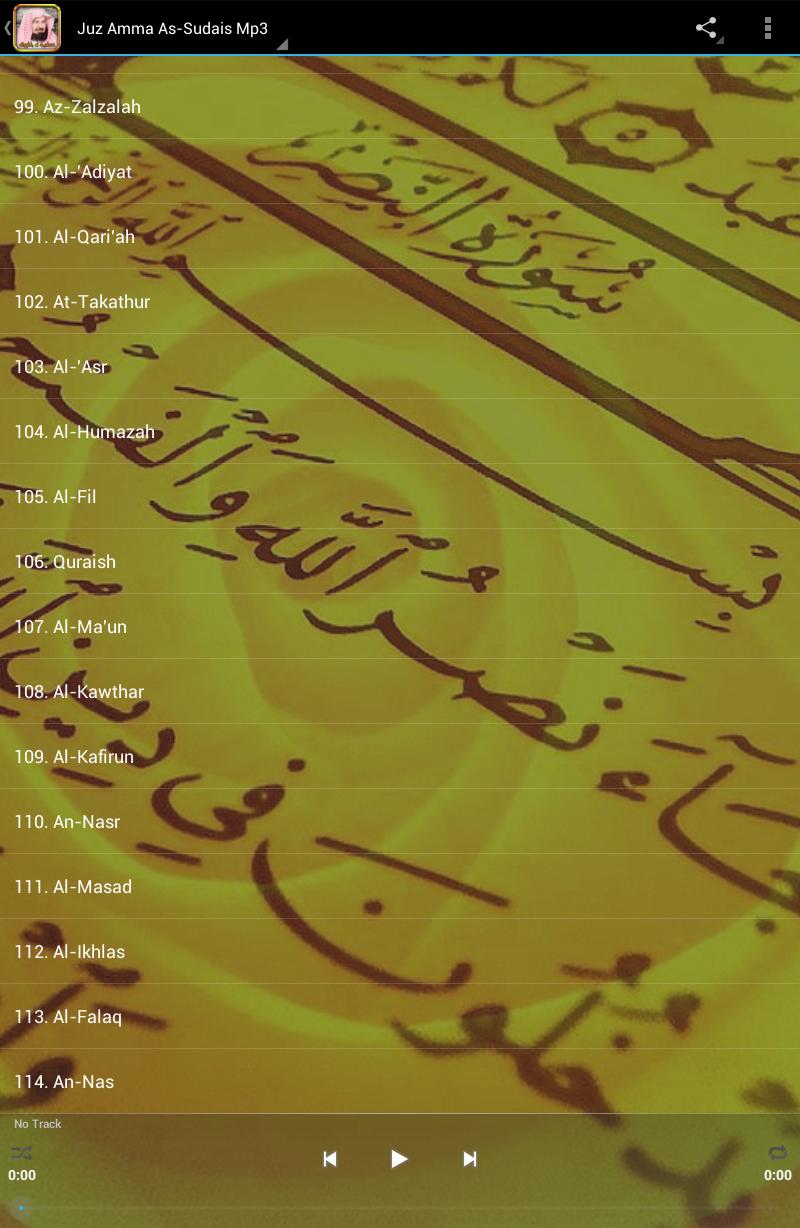 Juz Amma As-Sudais Mp3
99. Az-Zalzalah
100. Al-'Adiyat
101. Al-Qari'ah
102. At-Takathur
103. Al-'Asr
104. Al-Humazah
105. Al-Fil
106. Quraish
107. Al-Ma'un
108. Al-Kawthar
109. Al-Kafirun
110. An-Nasr
111. Al-Masad
112. Al-Ikhlas
113. Al-Falaq
114. An-Nas
No Track
0:00 0:00
سُورَةُ النَّصْرِ
بِسْمِ اللَّهِ
جَاءَ نَصْرُ اللَّهِ وَالْفَتْحُ
فِي دِينِ